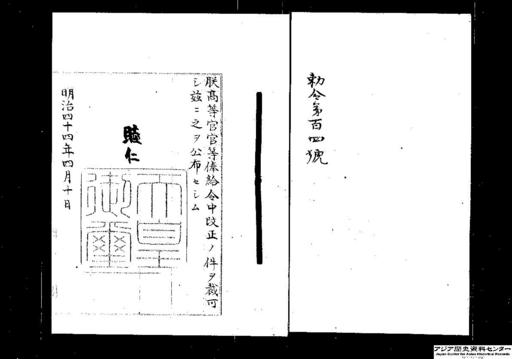 勅令第百四號
朕高等官官等俸給令中改正ノ件ヲ裁可
シ茲ニ之ヲ公布セシム
睦仁
天皇御璽
明治四十四年四月十日
アジア歴史資料センター
Japan Center for Asian Historical Records